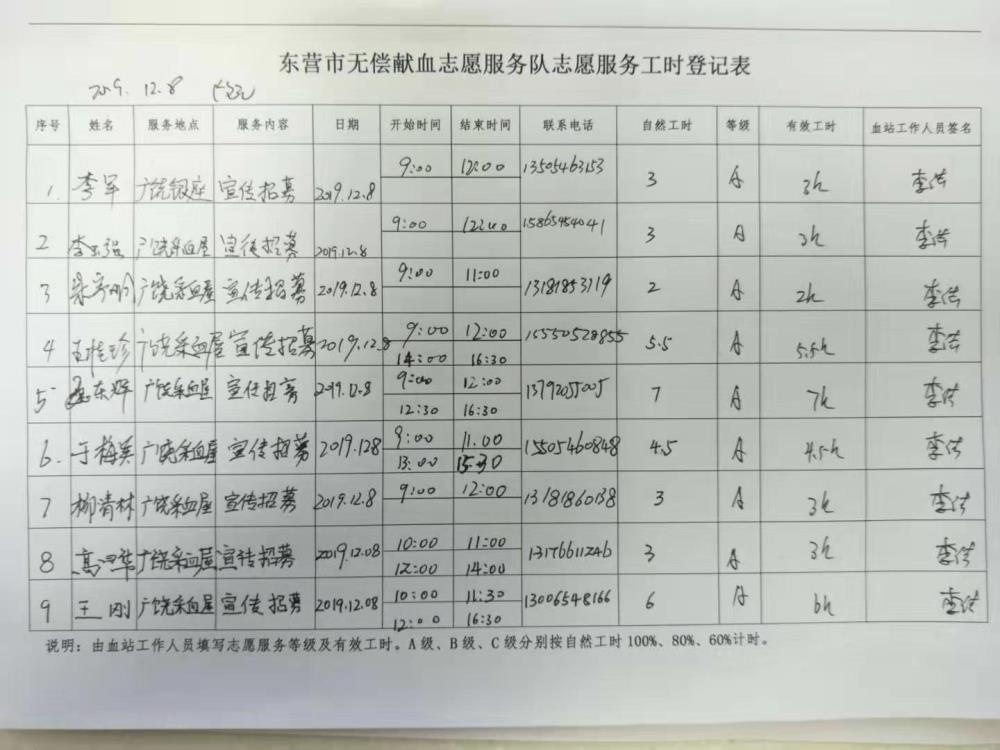 东营市无偿献血志愿服务队志愿服务工时登记表
2019.12.8
序号 姓名 服务地点 服务内容 日期 开始时间 结束时间 联系电话 自然工时 等级 有效工时 血站工作人员签名
1. 李军 广饶银座 宣传招募 2019.12.8 9:00 12:00 13505463153 3 A 3h 李洪
2 李玉强 广饶采血屋 宣传招募 2019.12.8 9:00 12:00 15865454041 3 A 3h 李洪
3 广饶采血屋 宣传招募 2019.12.8 9:00 11:00 13181853119 2 A 2h 李洪
4 王桂珍 广饶采血屋 宣传招募 2019.12.8 9:00 12:00 15550528955 5.5 A 5.5h 李洪
14:00 16:30
5 广饶采血屋 宣传招募 2019.12.8 9:00 12:00 13792055005 7 A 7h 李洪
12:30 16:30
6. 于梅英 广饶采血屋 宣传招募 2019.128 9:00 11.00 15505460848 4.5 A 4.5h 李洪
13:00 15:30
7 柳清林 广饶采血屋 宣传招募 2019.12.8 9:00 12:00 13181860138 3 A 3h 李洪
8 广饶采血屋 宣传招募 2019.12.08 10:00 11:00 13176611246 3 A 3h 李洪
12:00 14:00
9 王刚 广饶采血屋 宣传招募 2019.12.08 10:00 11:30 13006548166 6 A 6h 李洪
12:00 16:30
说明：由血站工作人员填写志愿服务等级及有效工时。A级、B级、C级分别按自然工时100%、80%、60%计时。